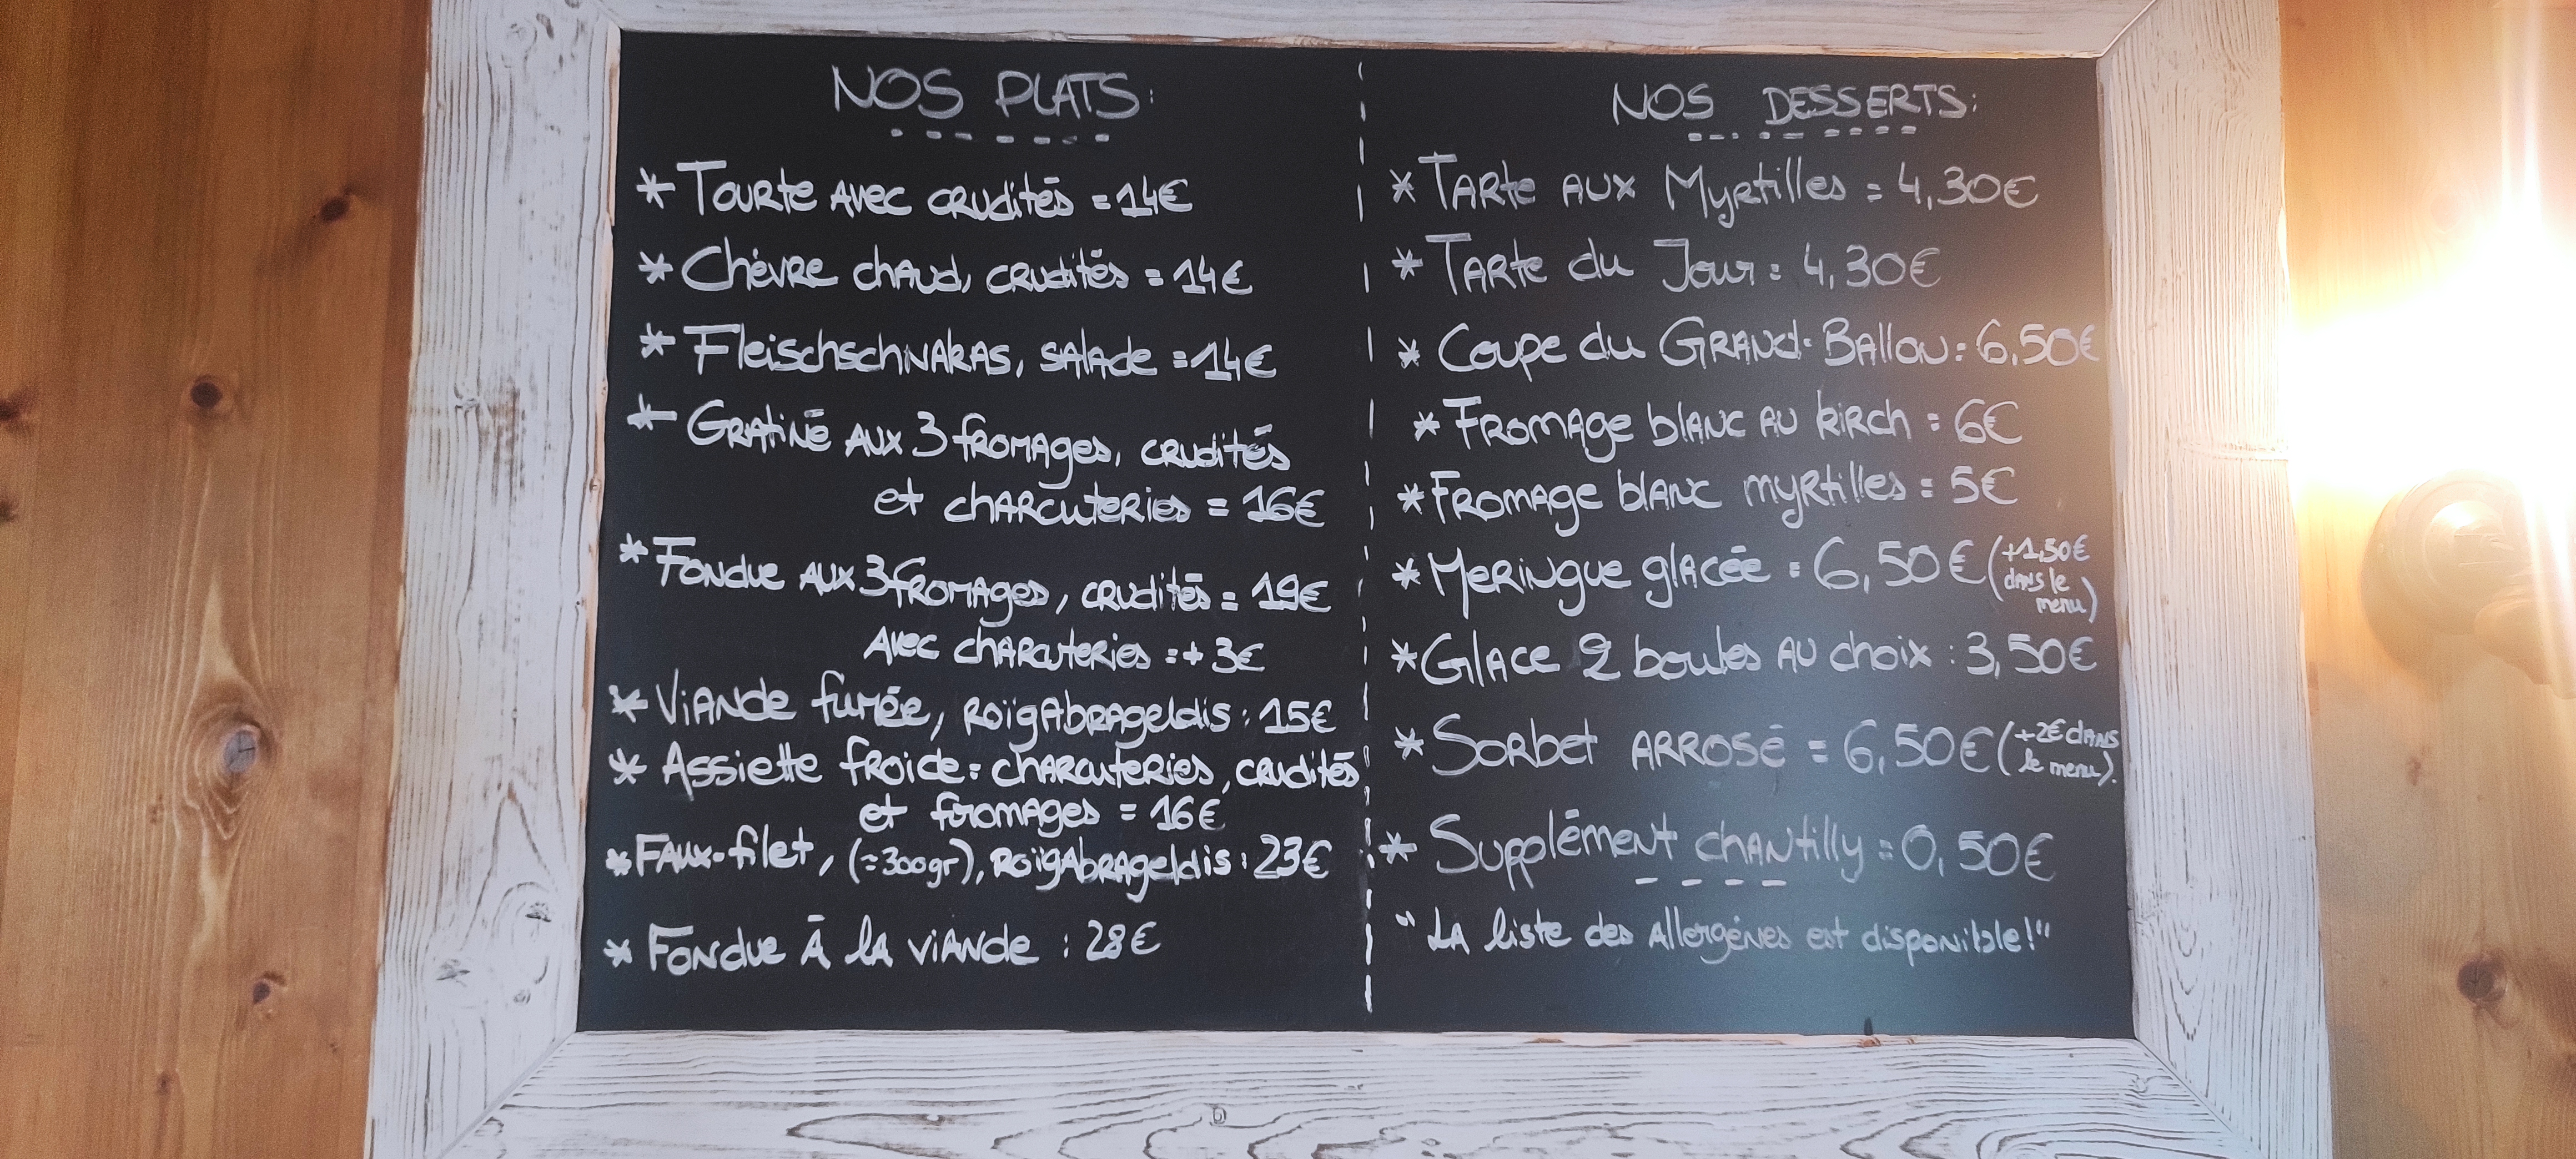 NOS PLATS:
* Tourte avec crudités = 14€
* Chèvre chaud, crudités = 14€
* Fleischschnakas, salade = 14€
* Gratiné aux 3 fromages, crudités
et charcuteries = 16€
* Fondue aux 3 fromages, crudités = 19€
Avec charcuteries = + 3€
* Viande fumée, Roïgabrageldis : 15€
* Assiette froide = charcuteries, crudités
et fromages = 16€
* Faux-filet, (=300gr), Roïgabrageldis : 23€
* Fondue à la viande : 28€
NOS DESSERTS:
* Tarte aux Myrtilles = 4,30€
* Tarte du Jour = 4,30€
* Coupe du Grand-Ballon = 6,50€
* Fromage blanc au kirch = 6€
* Fromage blanc myrtilles = 5€
* Meringue glacée = 6,50€ (+1,50€
dans le
menu)
* Glace 2 boules au choix : 3,50€
* Sorbet arrosé = 6,50€ (+2€ dans
le menu).
* Supplément chantilly = 0,50€
"La liste des allergènes est disponible!"